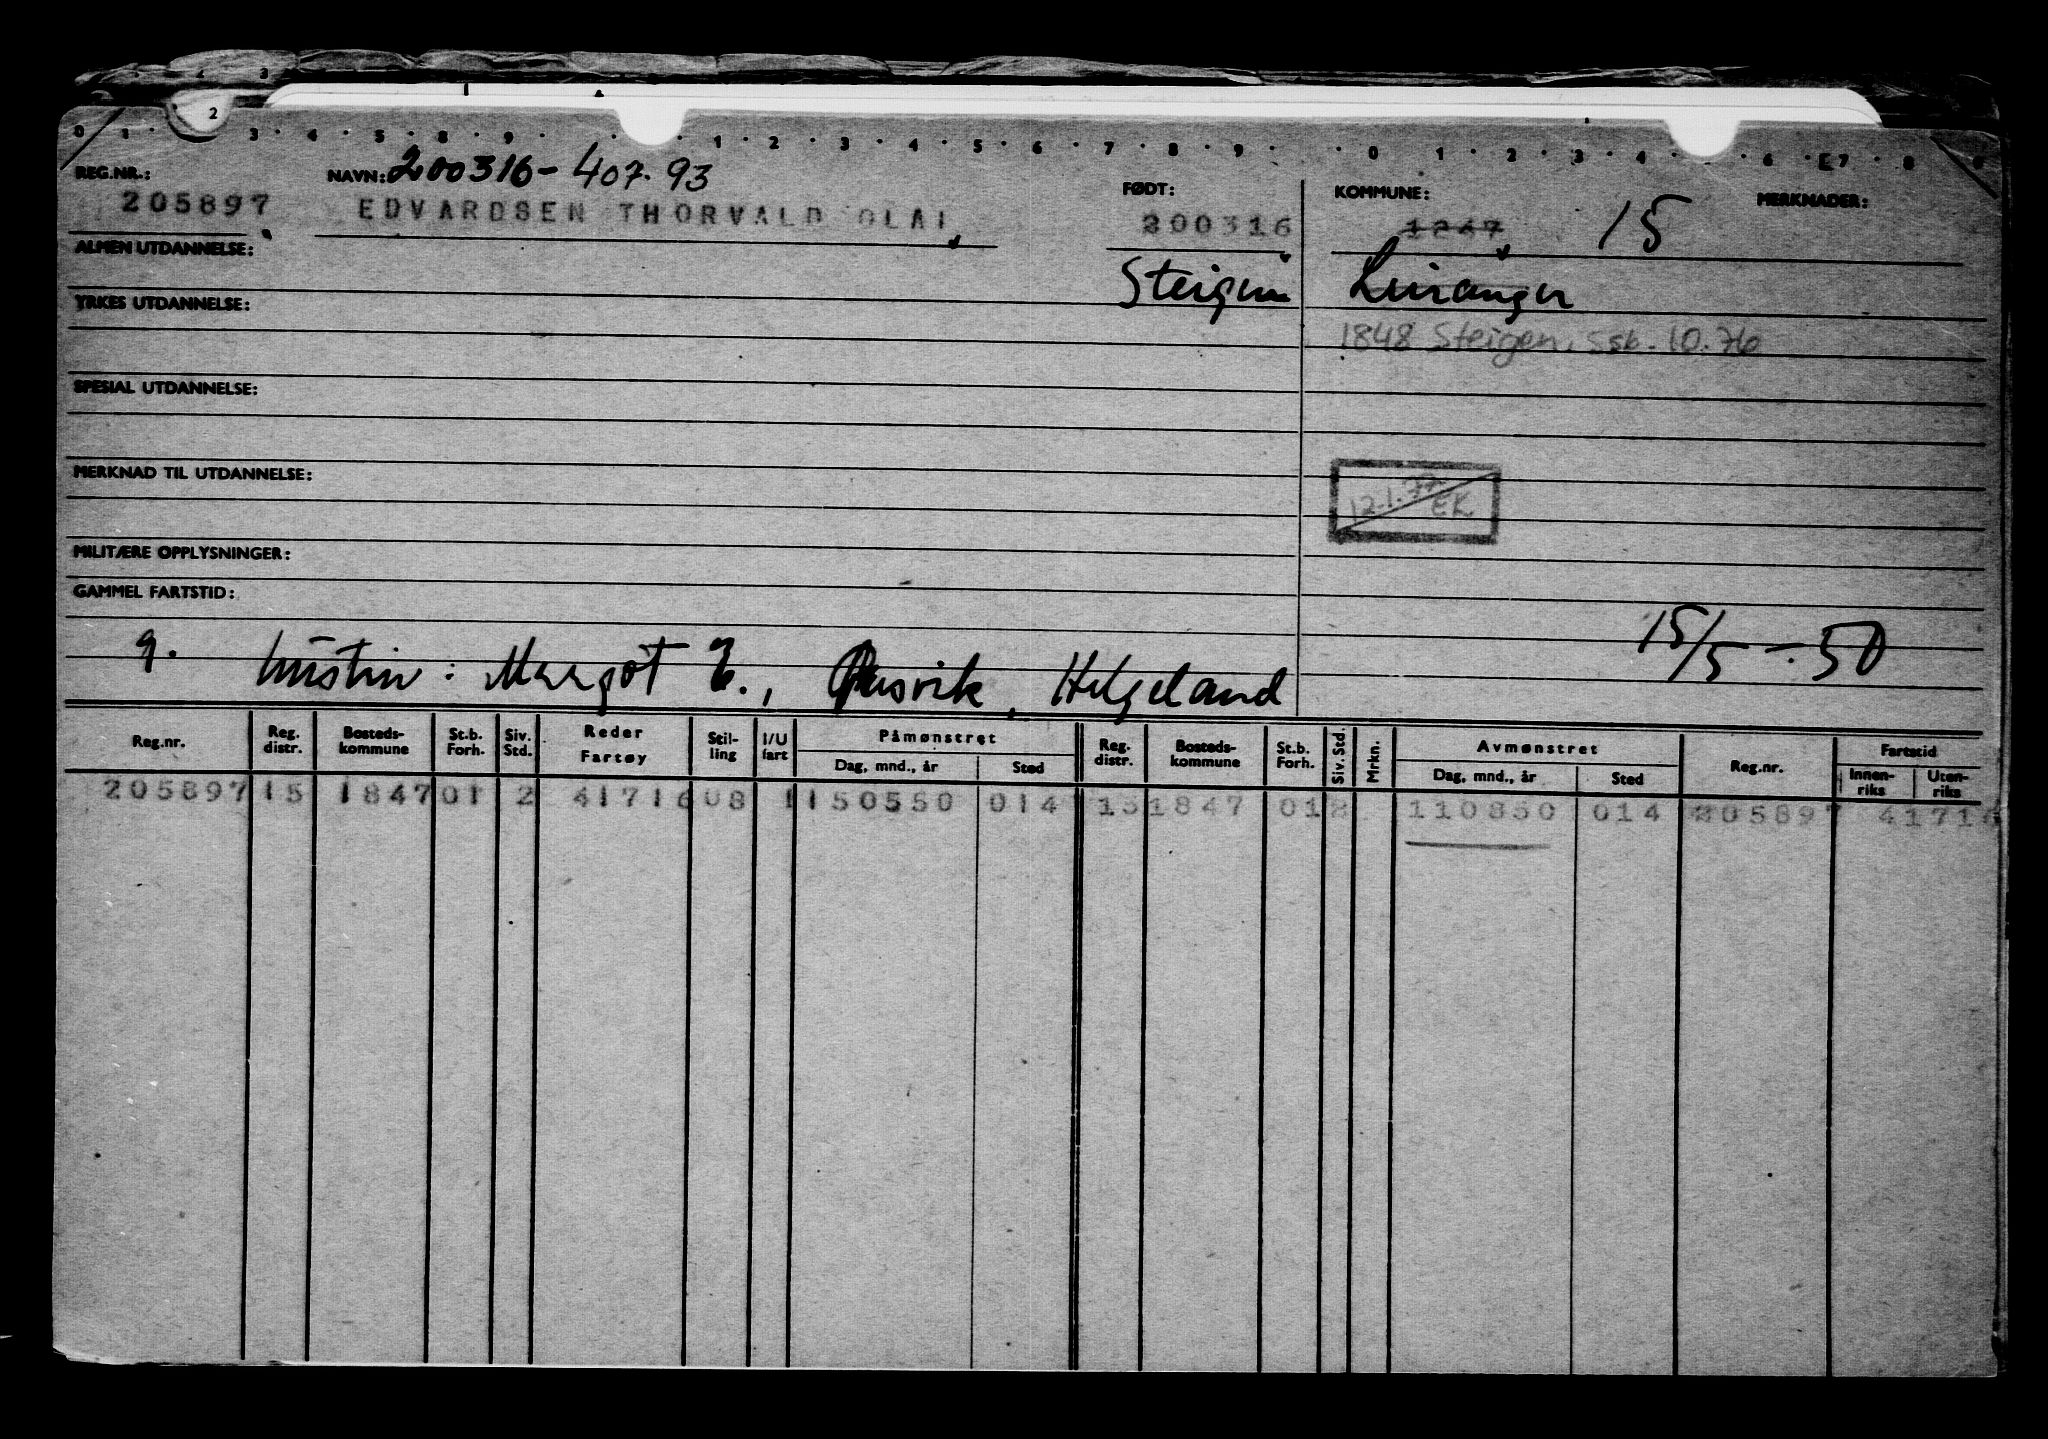 0 1 · 2 3 · 4 · 5 · 8 · 9 · · 1 · 2 · 3 · 4 · 5 · 6 · 7 · 8 · 9 · · 0 · 1 · 2 · 3 · 4 · · 6 · E7 · 8
REG.NR.: NAVN: 200316-407.93 FØDT: KOMMUNE: MERKNADER:
205897 EDVARDSEN THORVALD OLAI 200316 1247 15
ALMEN UTDANNELSE: Steigen Leiranger
YRKES UTDANNELSE: 1848 Steigen, Ssk. 10.76
SPESIAL UTDANNELSE:
MERKNAD TIL UTDANNELSE: 12.1.77 EK
MILITÆRE OPPLYSNINGER:
GAMMEL FARTSTID:
15/5-.50
g. hustru: Margot E., Helgeland
Reg.nr. Reg. distr. Bosteds-kommune St.b. Forh. Siv. Std. Reder Fartøy Stil-ling I/U fart Påmønstret Dag, mnd., år Sted Reg. distr. Bosteds-kommune St.b. Forh. Siv. Std. Mrkn. Avmønstret Dag, mnd., år Sted Reg.nr. Fartstid Innen-riks Uten-riks
205897 15 1847 01 2 41716 08 1 150550 014 15 1847 01 2 110850 014 205897 41716